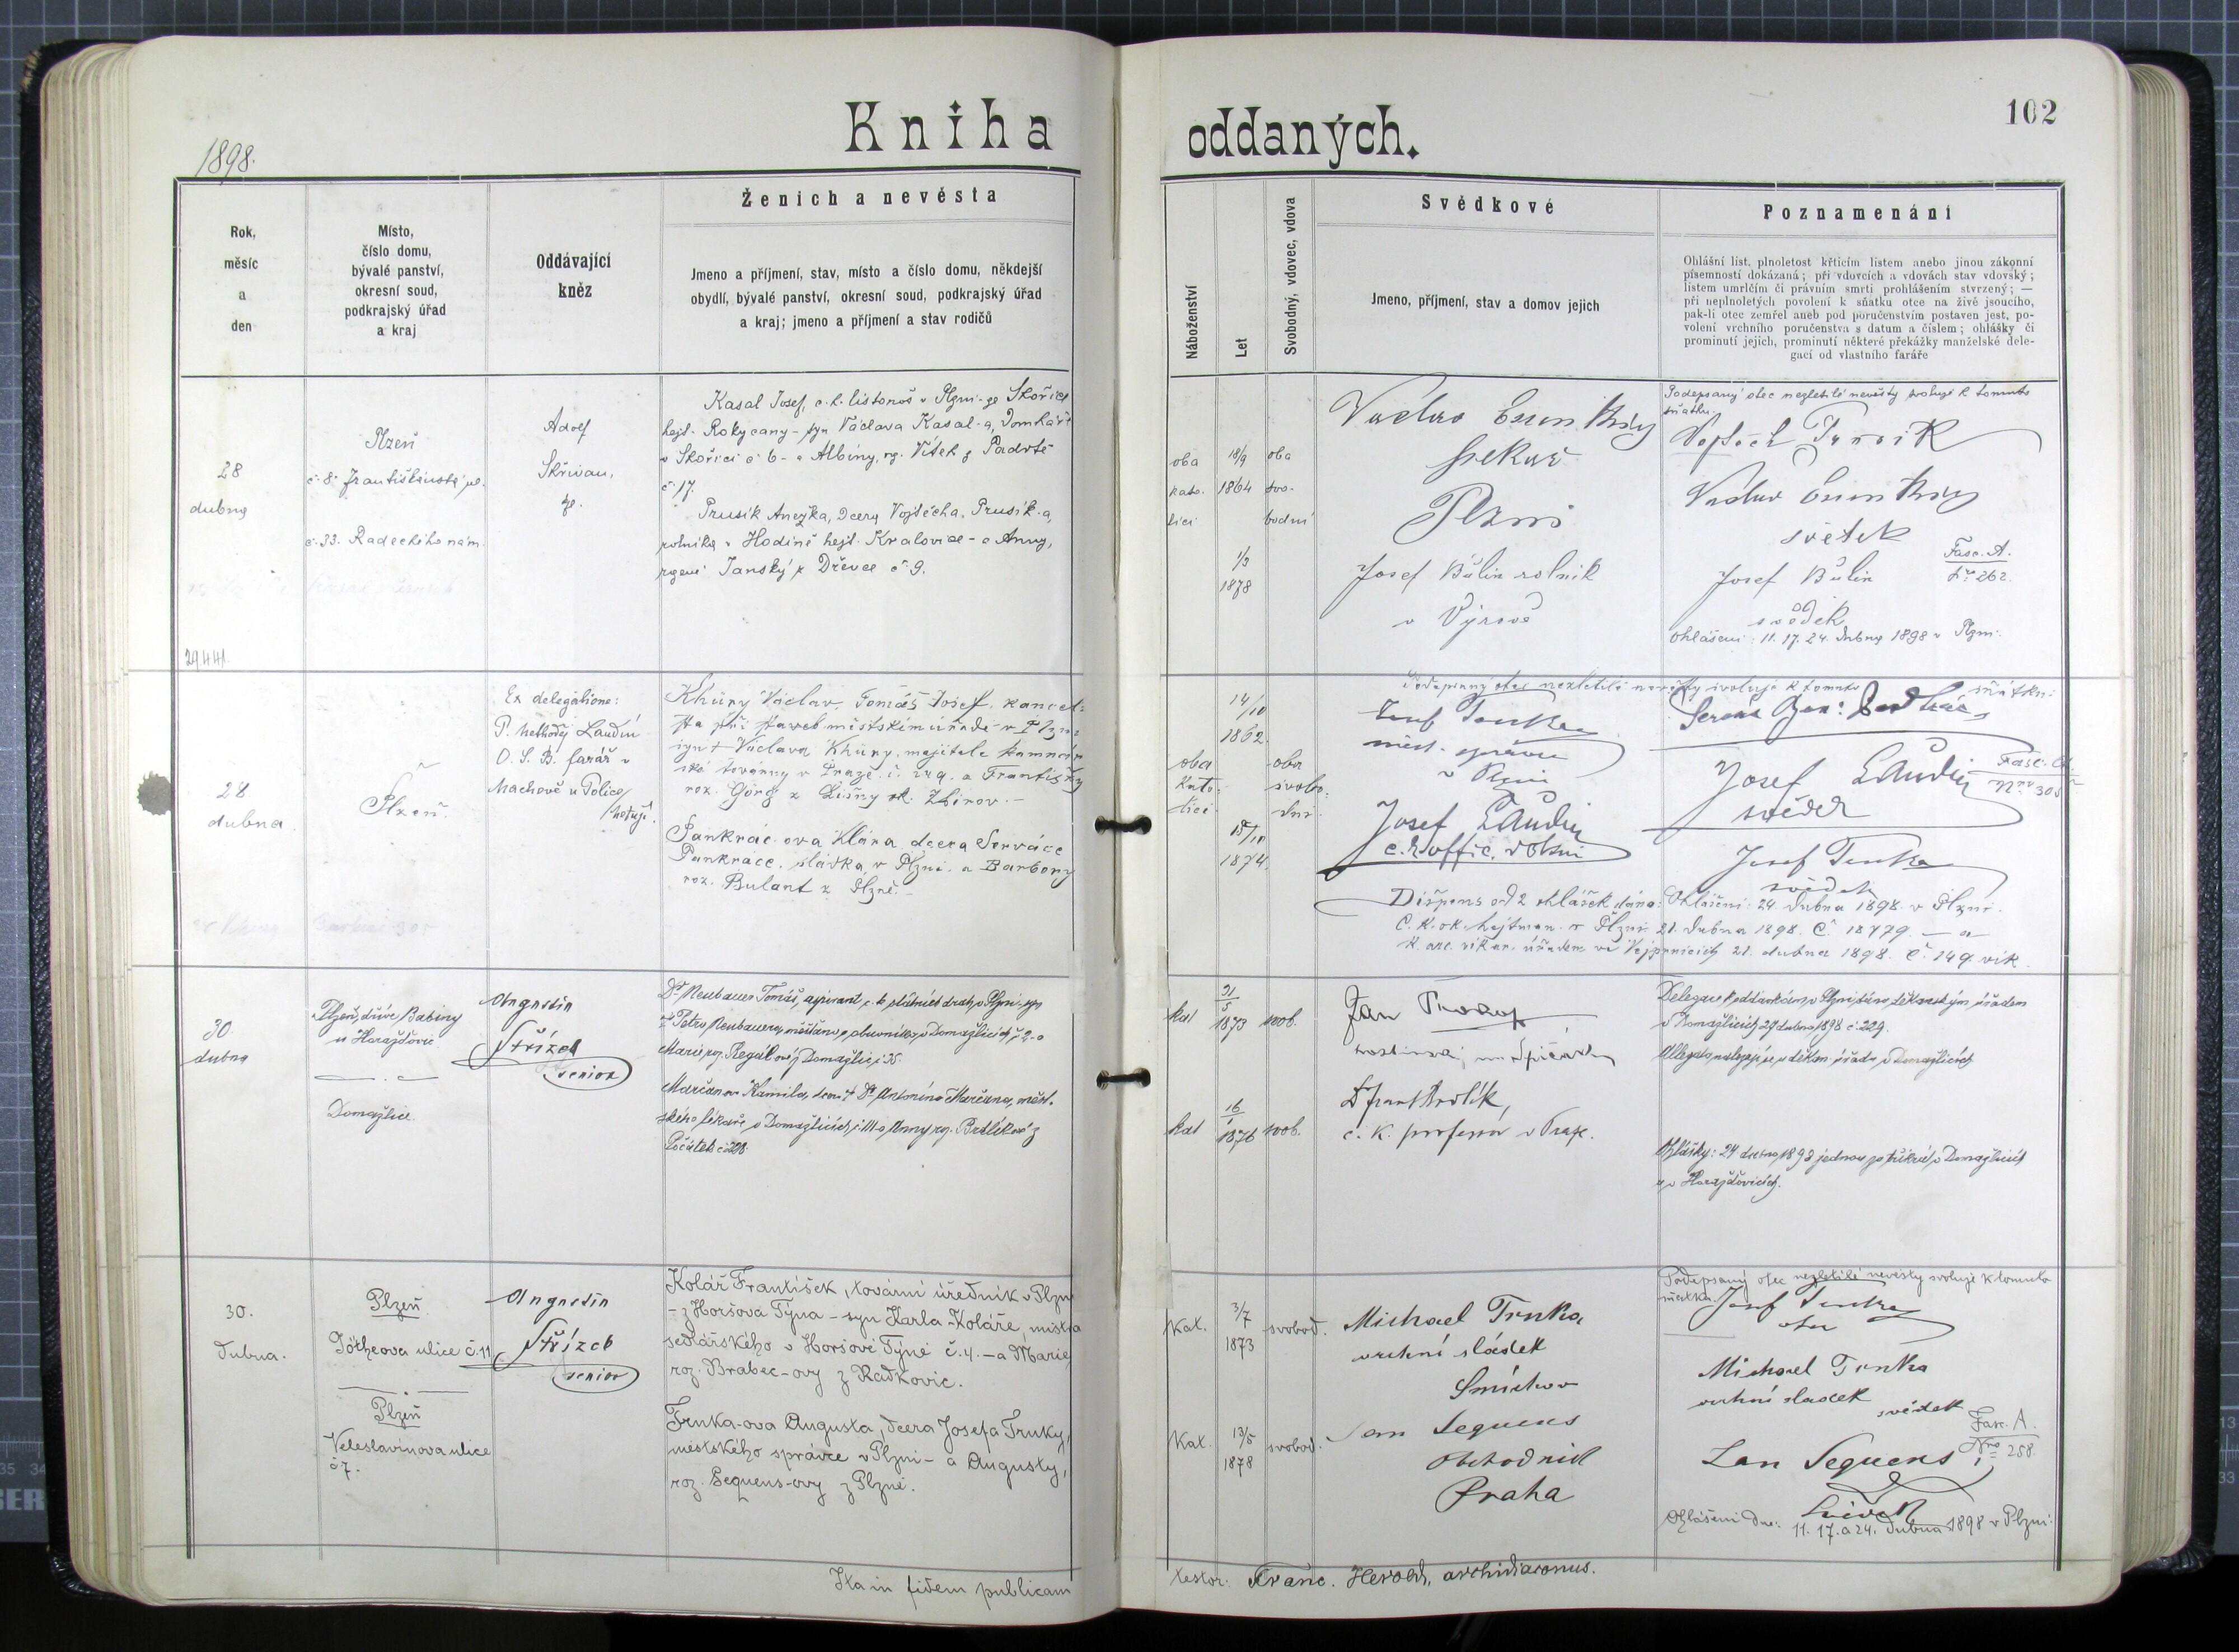 Kniha oddaných.
102
1898.
Rok,
měsíc
a
den
Místo,
číslo domu,
bývalé panství,
okresní soud,
podkrajský úřad
a kraj
Oddávající
kněz
Ženich a nevěsta
Jmeno a příjmení, stav, místo a číslo domu, někdejší
obydlí, bývalé panství, okresní soud, podkrajský úřad
a kraj; jmeno a příjmení a stav rodičů
Náboženství
Let
Svobodný, vdovec, vdova
Svědkové
Jmeno, příjmení, stav a domov jejich
Poznamenání
Ohlášní list, plnoletost křticím listem anebo jinou zákonní
písemností dokázaná; při vdovcích a vdovách stav vdovský;
listem umrlčím či právním smrti prohlášením stvrzený; —
při neplnoletých povolení k sňatku otce na živě jsoucího,
pak-li otec zemřel aneb pod poručenstvím postaven jest, po-
volení vrchního poručenstva s datum a číslem; ohlášky či
prominutí jejich, prominutí některé překážky manželské dele-
gací od vlastního faráře
28
dubna
Plzeň
č. 8. Františkánská ul.
č. 33. Radeckého nám.
Adolf
Skřivan,
Kasal Josef, c. k. listonoš v Plzni - ze Skořice
hejt. Rokycany - syn Václava Kasal-a, Domkáře
v Skořici č 6 - a Albiny, roz. Vítek z Padrtě
č 17.
Prusík Anežka, dcera Vojtěcha Prusík-a,
rolníka v Hodíně hejt. Kralovice - a Anny,
rozené Janský z Dřevce č 9.
29441.
oba
kato-
líci
18/9
1864
1/3
1878
oba
svo-
bodní
Václav
pekař
Plzni
Josef Bulín rolník
v Výrově
Podepsaný otec nezletilé nevěsty svoluje k tomuto
sňatku
Vojtěch Prusík
Václav
svědek
Josef Bulín
svědek
Fasc. A.
Nro 262.
Ohlášení: 11. 17. 24. dubna 1898 v Plzni.
28
dubna.
Plzeň.
Ex delegatione:
P. Methoděj Laudín
O. S. B. farář v
Machově u Police
Khüny Václav, Tomáš Josef, kancel-
sta při staveb. městském úřadě v Plzni
syn † Václava Khüny, majitele kamnář-
ské továrny v Praze č. 249. a Františky
roz. Görg z Lišny ok. Zbirov. -
Pankrác-ova Klára dcera Serváce
Pankráce, sládka v Plzni a Barbory
roz. Bulant z Plzně. -
oba
kato-
lící
14/10
1862.
15/10
1874.
oba
svobo-
dní.
Podepsaný otec nezletilé nevěsty svoluje k tomuto sňatku:
Josef Trnka
měst. správce
v Plzni
Josef Laudín
Josef Laudín
svědek
Fasc. A
Nro 305
Josef Trnka
svědek
Dispens od 2 ohlášek dána: Ohlášení: 24. dubna 1898. v Plzni.
C. k. ok. hejtman. v Plzni 21. dubna 1898. Č. 18779. — a
k. arc. vikar. úřadem ve Vejprnicích 21. dubna 1898. č. 149 vik.
30
dubna
Plzeň, dříve Babiny
u Horažďovic
Domažlice.
Augustin
Střízek
senior
Dr Neubauer Tomáš, aspirant c. k. státních drah v Plzni, syn
† Petra Neubauera, měšťana a obuvníka v Domažlicích č 2 a
Marie roz. Regálové z Domažlic č 35.
Marčan-ova Kamila, dcera † Dr Antonína Marčana, měst-
ského lékaře v Domažlicích, a Anny roz. Brdlíkové z
Počátek č 228.
kat
21
5
1873
svob.
kat
16
1
1876
svob.
Jan
na Špičáku
c. k. professor v Praze.
Delegace k oddavkám v Plzni dána děkanským úřadem
v Domažlicích 29 dubna 1898 č 229.
Allegata nalezají se u děkan. úřadu v Domažlicích
Ohlášky: 24 dubna 1898 jednou za třikrát v Domažlicích
a v Horažďovicích.
30.
dubna.
Plzeň
Göthe-ova ulice č. 11
Plzeň
Veleslavínova ulice
č 7.
Augustin
Střízek
senior
Kolář František, tovární úředník v Plzni
- z Horšova Týna - syn Karla Koláře, mistra
sedlářského v Horšově Týně č. 4. - a Marie
roz. Brabec-ovy z Radkovic.
Trnka-ova Augusta, dcera Josefa Trnky,
městského správce v Plzni - a Augusty,
roz. Sequens-ovy z Plzně.
Kat.
3/7
1873
svobod.
Kat.
13/5
1878
svobod.
Michael Trnka
vrchní sládek
Smíchov
Jan Sequens
obchodník
Praha
Podepsaný otec nezletilé nevěsty svoluje k tomuto
sňatku.
Josef Trnka
otec
Michael Trnka
vrchní sladek
svědek
Fasc. A.
Nro 258.
Jan Sequens
svědek
Ohlášení dne: 11. 17. a 24. dubna 1898 v Plzni:
Ita in fidem publicam
testor: Franc. Herold, archidiaconus.